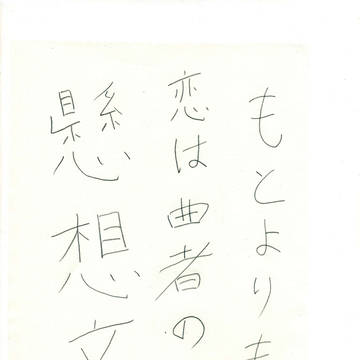 もとよりも
恋は曲者の
懸想文